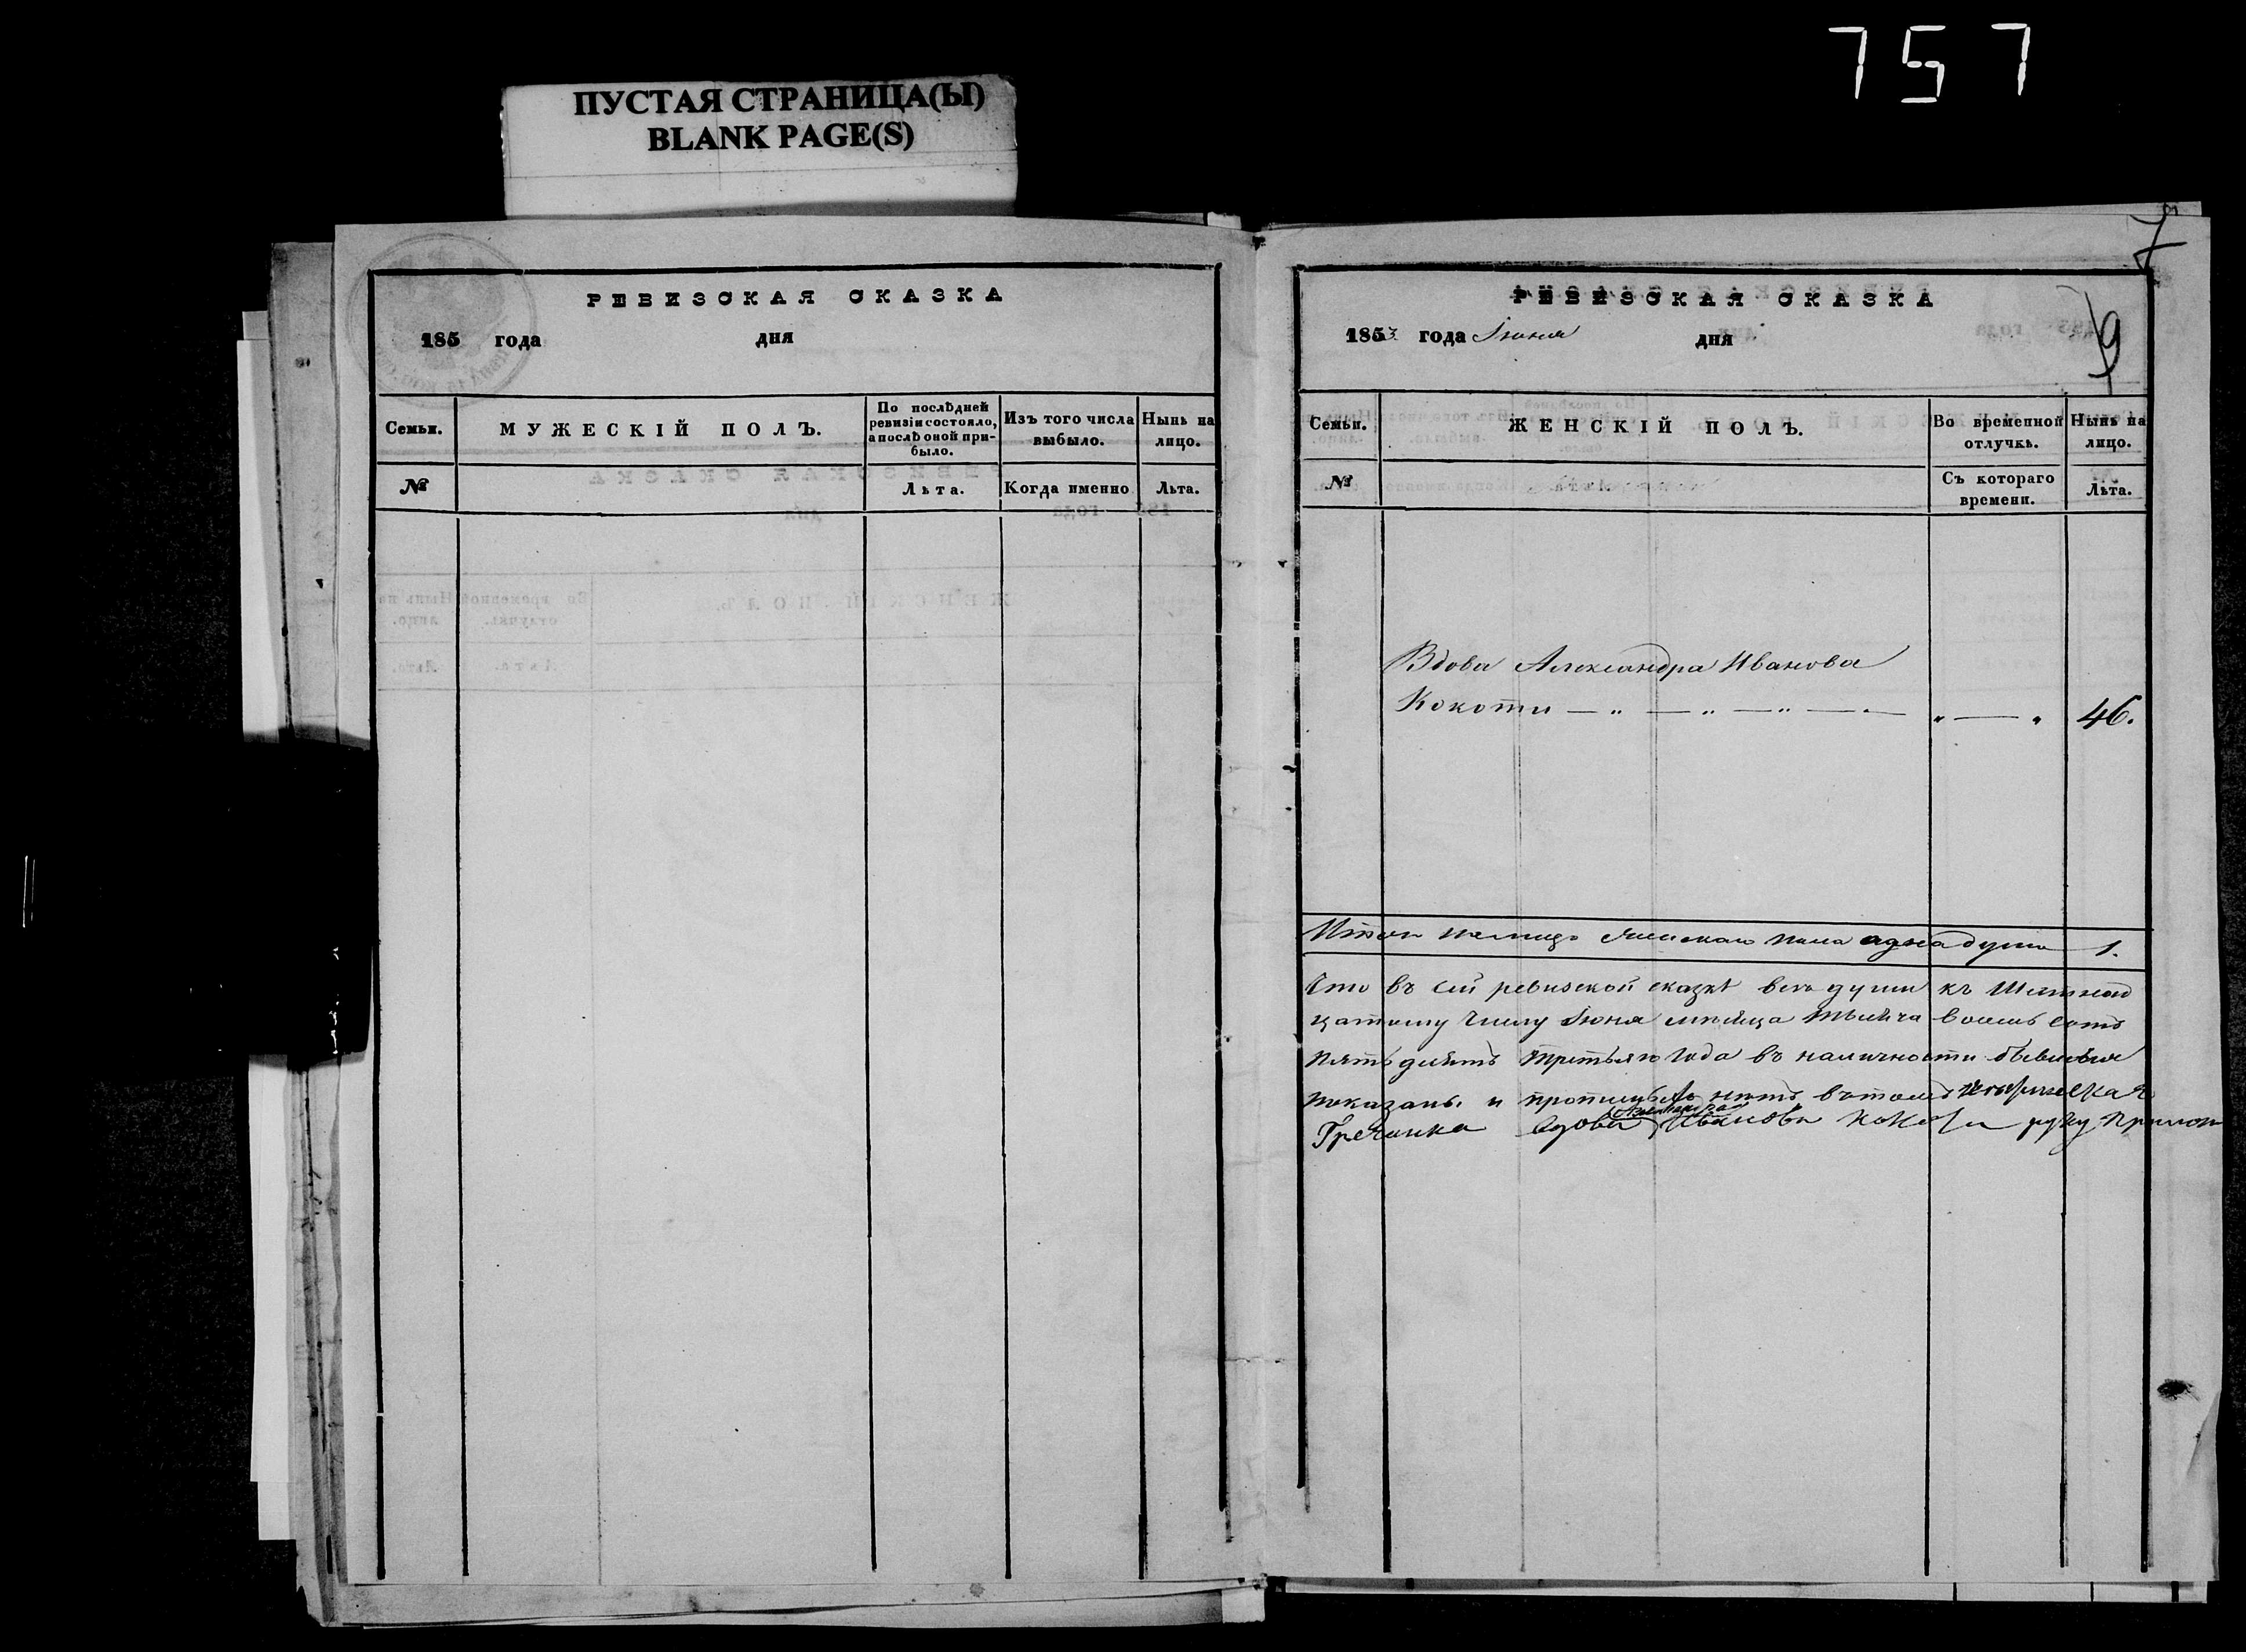 757
ПУСТАЯ СТРАНИЦА(Ы)
BLANK PAGE(S)
РЕВИЗСКАЯ СКАЗКА
185 года дня
Семьи. МУЖЕСКІЙ ПОЛЪ. По послѣдней ревизіи состояло, а послѣ оной прибыло. Изъ того числа выбыло. Нынѣ на лицо.
№ Лѣта. Когда именно Лѣта.
7
9
РЕВИЗСКАЯ СКАЗКА
1853 года Іюня дня
Семьи. ЖЕНСКІЙ ПОЛЪ. Во временной отлучкѣ. Нынѣ на лицо.
№ Съ котораго времени. Лѣта.
Вдова Александра Иванова
Кокоти — „ — „ — „ — „ — „ — „ 46.
Итого налицо женскаго пола одна душа 1.
Что въ сей ревизской сказкѣ всѣ души къ Шестнад
цатому числу Іюня мѣсяца тысяча восемь сотъ
пятьдесятъ третьяго года въ наличности бывшія
показаны и прописныхъ нѣтъ въ томъ
Александра
Гречанка вдова Иванова Кокоти руку прилож